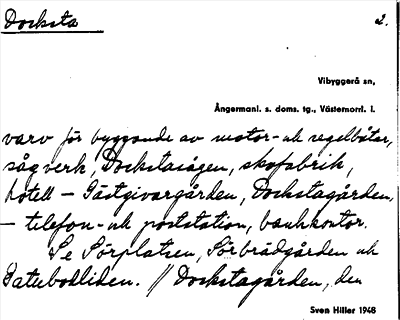 Docksta 2.
Vibyggerå sn,
Ångermanl. s. doms. tg., Västernorrl. l.
varv för byggande av motor- och segelbåtar,
sågverk, Dockstasågen, skofabrik,
hotell – Gästgivargården, Dockstagården,
– telefon- och poststation, bankkontor.
Se Sörplatsen, Sörbrådgården och
Gatubodliden. // Dockstagården, den
Sven Hiller 1948